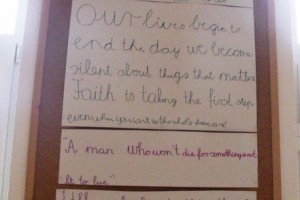 Our lives begin to
end the day we become
silent about things that matter
Faith is taking the first step
even when you
"A man who won't die for something is not
fit to live"